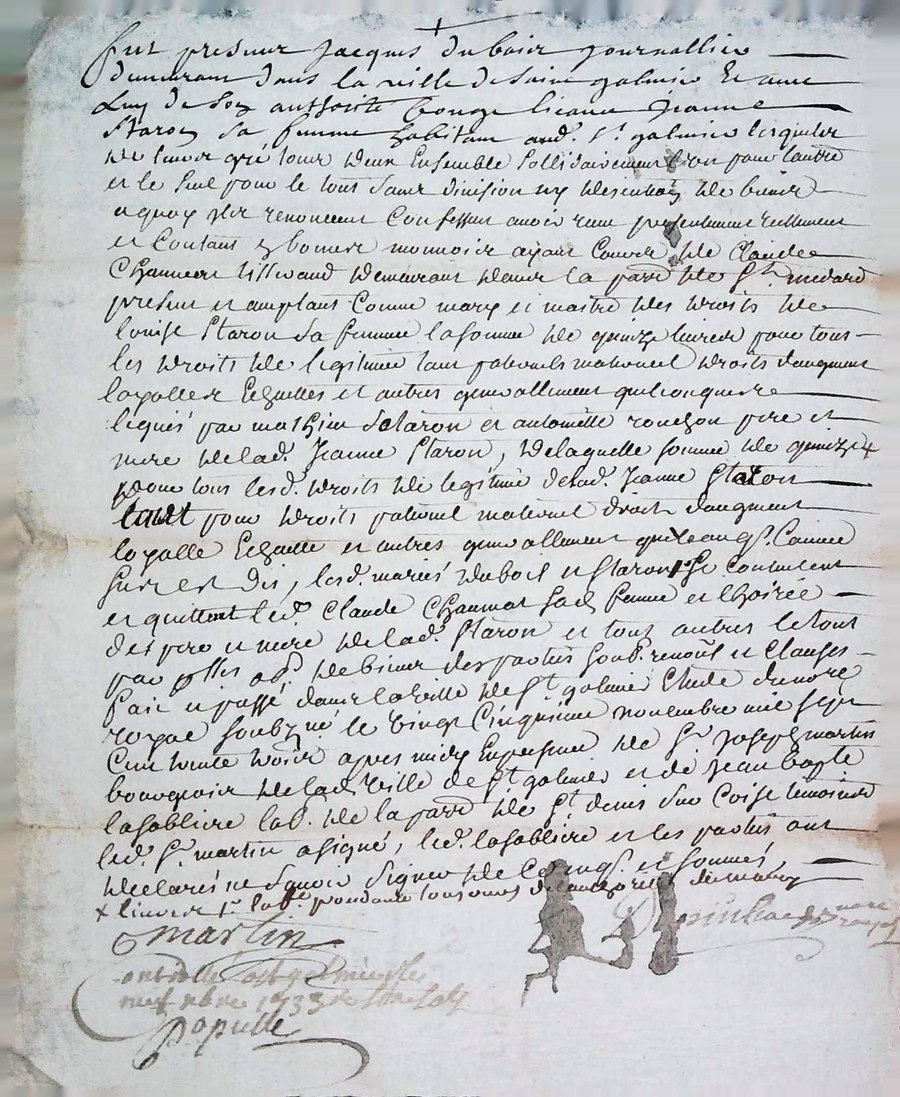 fut presant Jacques duboix journallier
demeurant dans la ville de Saint galmier Et avec
Luy de Son authorité Jeanne
Staron Sa femme habitans aud. St. galmier lesquels
de leur gré tous deux Ensemble Sollidairement l'un pour lautre
et le Seul pour le tout Sans division ny de biens
a quoy ils renoncent Confessent avoir reçu presentement reellement
et Contant en bonne monnoie ayant Cours de Claude
Chaumat tisserand demeurant dans la parr. de St. medard
present et acceptant Comme mary et maitre des droits de
Louise Staron Sa femme la Somme de quinze livres pour tous
les droits de legitime tant paternels maternel droits daugment
layalle Echuttes et autres generallement quelconques
legués par mathieu Staron et antoinette rouchon pere et
mere de lad. Jeanne Staron, de laquelle Somme de quinze +
pour tous lesd. droits de legitime de lad. Jeanne Staron
tant pour droits paternel maternel droit daugment
layalle Echutte et autres generallement quelconqs. Comme
Sus est dit, lesd. mariés duboix et Staron Se Contentent
et quittent led. Claude Chaumat Sad. femme et lhoirie
des pere et mere de lad. Staron et tous autres le tout
par de biens des parties Soub. renons. et Clauses
fait et passé dans la ville de St. galmier Etude du nore
royal Soubzné le vingt Cinquieme novembre mil Sept
Cent trente trois apres midy En presence de Sr. Joseph martin
bourgeois de lad. ville de St. galmier et de Jean bapte
lasabliere lab. de la parr. de St. denis Sur Coise temoins
led. Sr. martin a signé, led. lasabliere et les parties ont
declaré ne Scavoir Signer de Ce enqs. et Sommés
+ livres
martin
nore
royal
9bre 1733
papulle